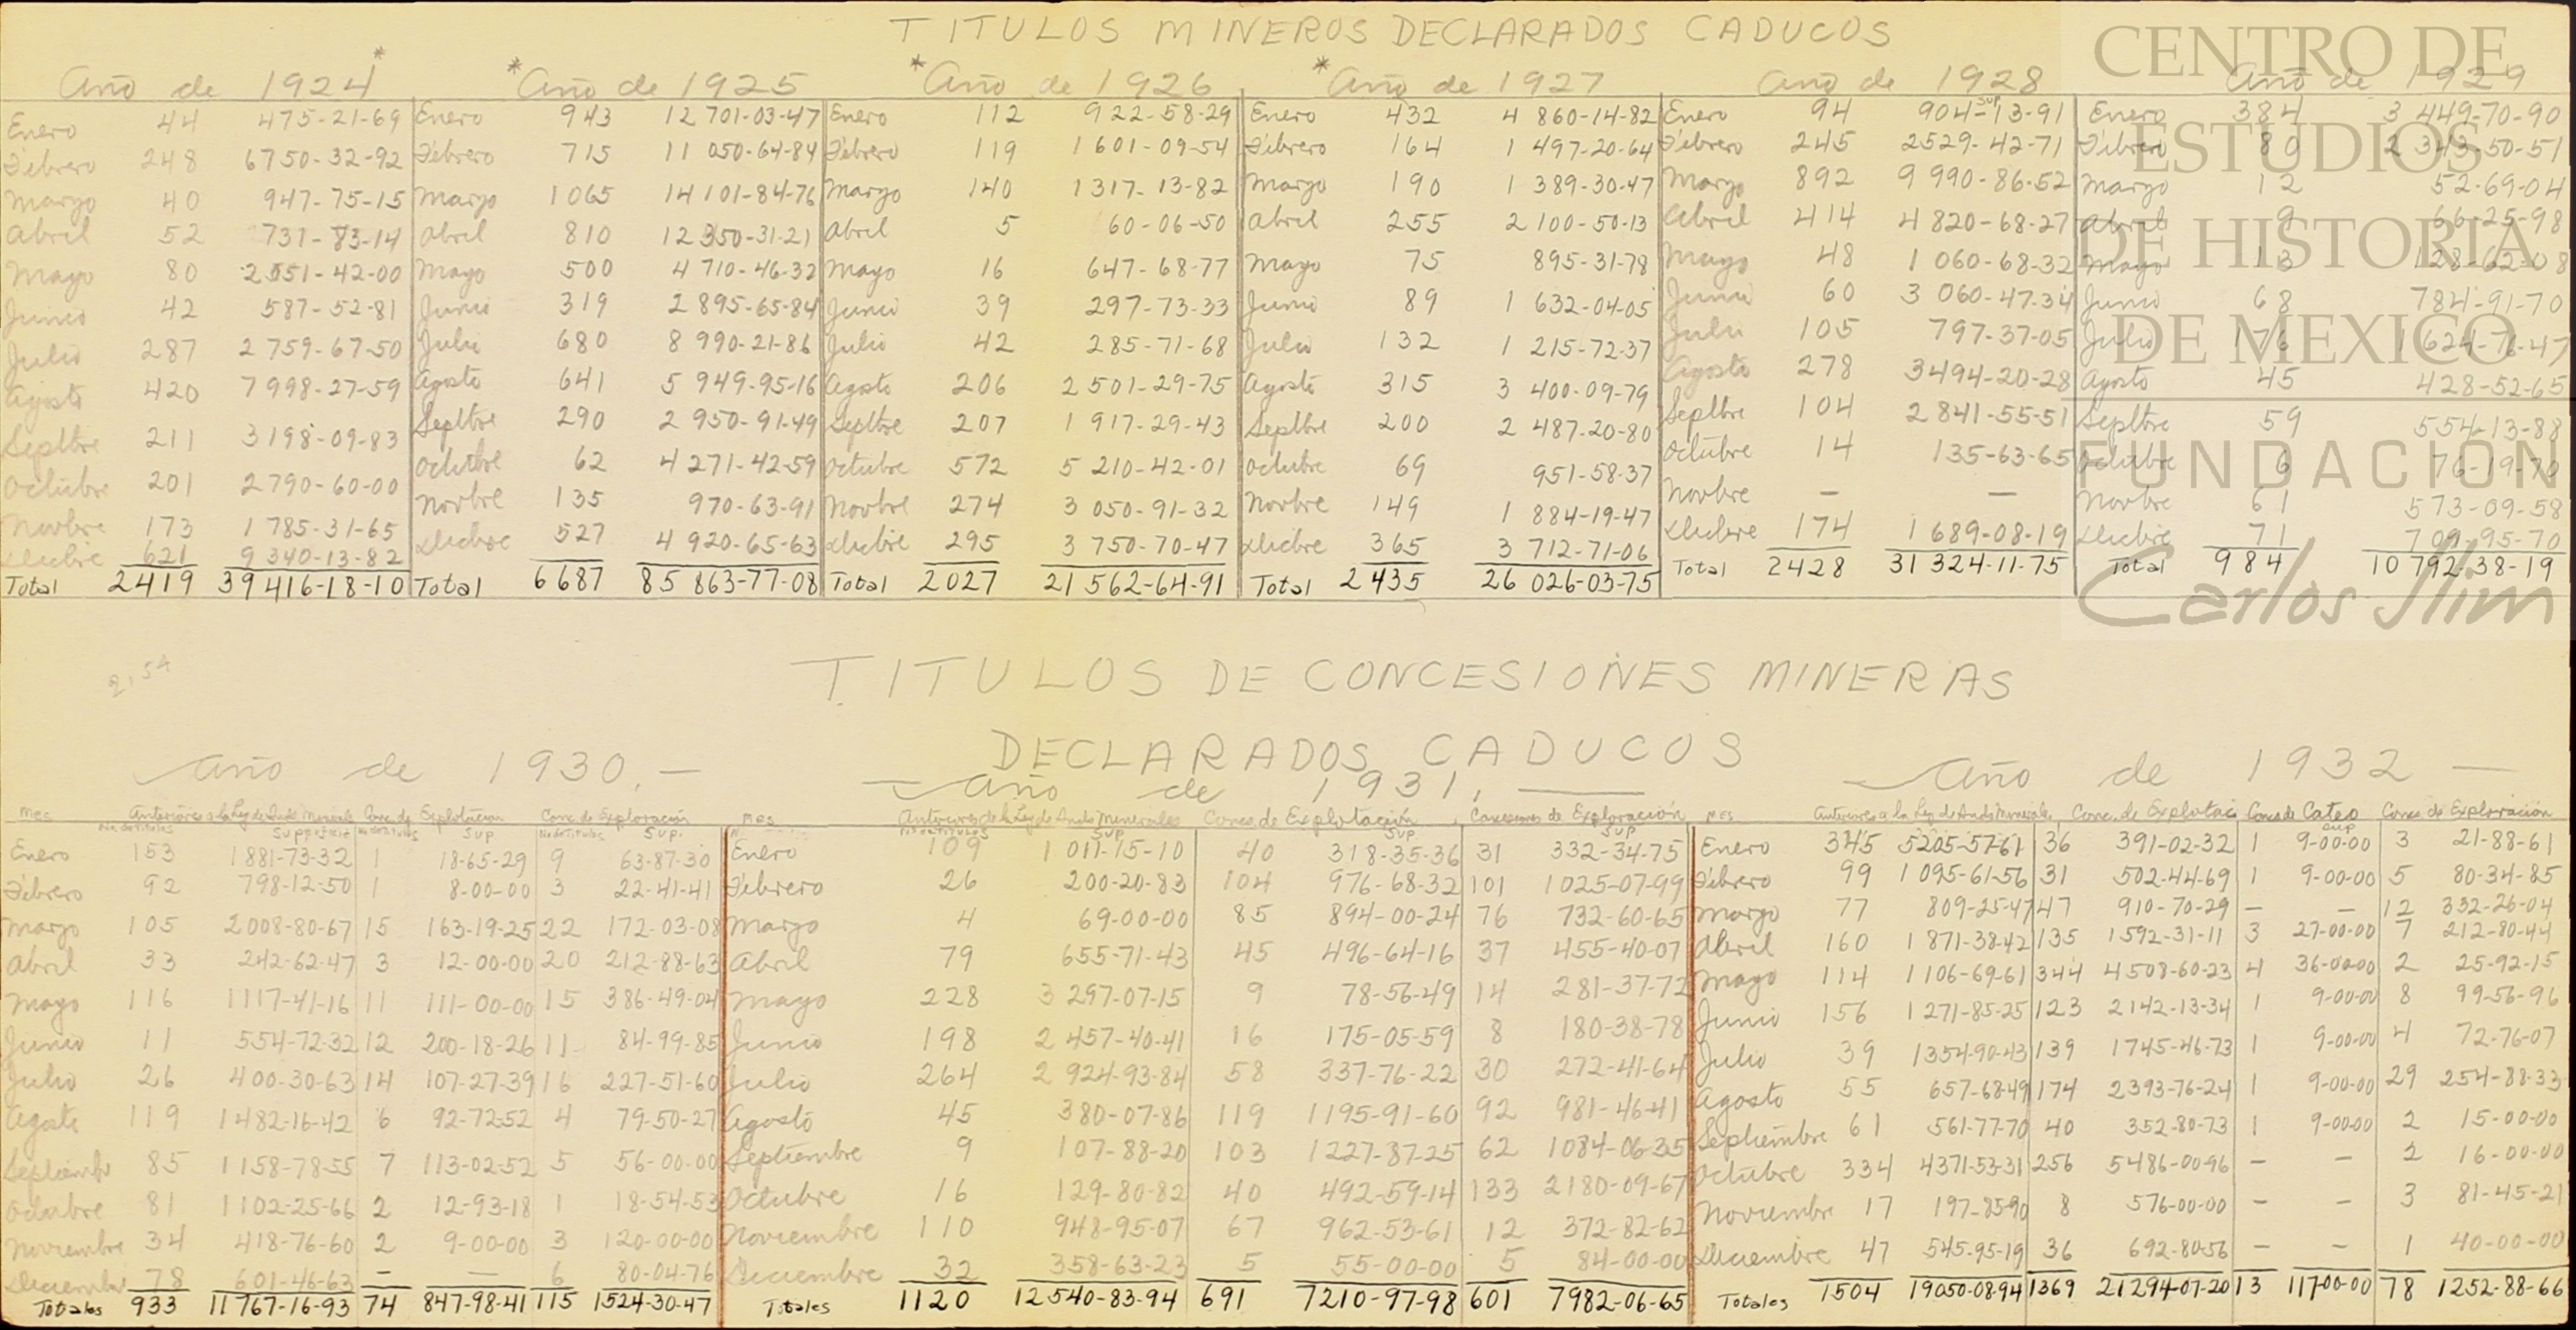 TITULOS MINEROS DECLARADOS CADUCOS
Año de 1924* *Año de 1925 *Año de 1926 *Año de 1927 Año de 1928 Año de 1929
Enero 44 475-21-69 Enero 943 12 701-03-47 Enero 112 922-58-29 Enero 432 4 860-14-82 Enero 94 904-13-91 Enero 384 3 449-70-90
Febrero 248 6750-32-92 Febrero 715 11 050-64-84 Febrero 119 1 601-09-54 Febrero 164 1 497-20-64 Febrero 245 2529-42-71 Febrero 80 2 343-50-51
Marzo 40 947-75-15 Marzo 1065 14 101-84-76 Marzo 140 1317-13-82 Marzo 190 1 389-30-47 Marzo 892 9 990-86-52 Marzo 12 52-69-04
Abril 52 731-83-14 Abril 810 12 350-31-21 Abril 5 60-06-50 Abril 255 2 100-50-13 Abril 414 4 820-68-27 Abril 9 66-25-98
Mayo 80 2 551-42-00 Mayo 500 4 710-46-32 Mayo 16 647-68-77 Mayo 75 895-31-78 Mayo 48 1 060-68-32 Mayo 13 128-62-08
Junio 42 587-52-81 Junio 319 2 895-65-84 Junio 39 297-73-33 Junio 89 1 632-04-05 Junio 60 3 060-47-34 Junio 68 784-91-70
Julio 287 2 759-67-50 Julio 680 8 990-21-86 Julio 42 285-71-68 Julio 132 1 215-72-37 Julio 105 797-37-05 Julio 176 1 624-76-47
Agosto 420 7998-27-59 Agosto 641 5 949-95-16 Agosto 206 2 501-29-75 Agosto 315 3 400-09-79 Agosto 278 3494-20-28 Agosto 45 428-52-65
Septbre 211 3198-09-83 Septbre 290 2 950-91-49 Septbre 207 1 917-29-43 Septbre 200 2 487-20-80 Septbre 104 2 841-55-51 Septbre 59 554-13-88
Octubre 201 2790-60-00 Octubre 62 4 271-42-59 Octubre 572 5 210-42-01 Octubre 69 951-58-37 Octubre 14 135-63-65 Octubre 6 76-19-70
Novbre 173 1 785-31-65 Novbre 135 970-63-91 Novbre 274 3 050-91-32 Novbre 149 1 884-19-47 Novbre — — Novbre 61 573-09-58
Dicbre 621 9 340-13-82 Dicbre 527 4 920-65-63 Dicbre 295 3 750-70-47 Dicbre 365 3 712-71-06 Dicbre 174 1 689-08-19 Dicbre 71 709-95-70
Total 2419 39 416-18-10 Total 6687 85 863-77-08 Total 2027 21 562-64-91 Total 2435 26 026-03-75 Total 2428 31 324-11-75 Total 984 10 792-38-19
CENTRO DE
ESTUDIOS
DE HISTORIA
DE MEXICO
FUNDACION
Carlos Slim
2154
TITULOS DE CONCESIONES MINERAS
DECLARADOS CADUCOS
Año de 1930.— Año de 1931.— Año de 1932 —
Mes Anteriores a la Ley de Inds Minerales Conc. de Explotacion Conc. de Exploración Mes Anteriores de la Ley de Inds Minerales Concs de Explotación Concesiones de Exploración Mes Anteriores a la Ley de Inds Minerales Conc. de Explotaci Concs de Cateo Concs de Exploración
No de titulos Superficie No de titulos Sup No de titulos Sup. No de titulos Sup Sup Sup Sup
Enero 153 1881-73-32 1 18-65-29 9 63-87-30 Enero 109 1 011-15-10 40 318-35-36 31 332-34-75 Enero 345 5205-57-61 36 391-02-32 1 9-00-00 3 21-88-61
Febrero 92 798-12-50 1 8-00-00 3 22-41-41 Febrero 26 200-20-83 104 976-68-32 101 1025-07-99 Febrero 99 1 095-61-56 31 502-44-69 1 9-00-00 5 80-34-85
Marzo 105 2008-80-67 15 163-19-25 22 172-03-08 Marzo 4 69-00-00 85 894-00-24 76 732-60-65 Marzo 77 809-25-47 47 910-70-29 — — 12 332-26-04
Abril 33 242-62-47 3 12-00-00 20 212-88-63 Abril 79 655-71-43 45 496-64-16 37 455-40-07 Abril 160 1 871-38-42 135 1592-31-11 3 27-00-00 7 212-80-44
Mayo 116 1117-41-16 11 111-00-00 15 386-49-04 Mayo 228 3 297-07-15 9 78-56-49 14 281-37-72 Mayo 114 1106-69-61 344 4508-60-23 4 36-00-00 2 25-92-15
Junio 11 554-72-32 12 200-18-26 11 84-99-85 Junio 198 2 457-40-41 16 175-05-59 8 180-38-78 Junio 156 1271-85-25 123 2142-13-34 1 9-00-00 8 99-56-96
Julio 26 400-30-63 14 107-27-39 16 227-51-60 Julio 264 2 924-93-84 58 337-76-22 30 272-41-64 Julio 39 1354-90-43 139 1745-46-73 1 9-00-00 4 72-76-07
Agosto 119 1482-16-42 6 92-72-52 4 79-50-27 Agosto 45 380-07-86 119 1195-91-60 92 981-46-41 Agosto 55 657-68-49 174 2393-76-24 1 9-00-00 29 254-88-33
Septiembr 85 1158-78-55 7 113-02-52 5 56-00-00 Septiembre 9 107-88-20 103 1227-87-25 62 1084-06-35 Septiembre 61 561-77-70 40 352-80-73 1 9-00-00 2 15-00-00
Octubre 81 1102-25-66 2 12-93-18 1 18-54-53 Octubre 16 129-80-82 40 492-59-14 133 2180-09-67 Octubre 334 4371-53-31 256 5486-00-96 — — 2 16-00-00
Noviembre 34 418-76-60 2 9-00-00 3 120-00-00 Noviembre 110 948-95-07 67 962-53-61 12 372-82-62 Noviembre 17 197-85-90 8 576-00-00 — — 3 81-45-21
Diciembre 78 601-46-63 — — 6 80-04-76 Diciembre 32 358-63-23 5 55-00-00 5 84-00-00 Diciembre 47 545-95-19 36 692-80-56 — — 1 40-00-00
Totales 933 11 767-16-93 74 847-98-41 115 1524-30-47 Totales 1120 12 540-83-94 691 7210-97-98 601 7982-06-65 Totales 1504 19050-08-94 1369 21294-07-20 13 117-00-00 78 1252-88-66